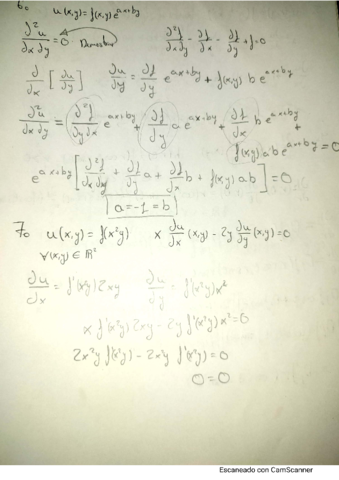 6. u(x,y) = f(x,y) e^{ax+by}
∂²u/∂x∂y = 0 ∂²f/∂x∂y - ∂f/∂x - ∂f/∂y + f = 0
∂/∂x [∂u/∂y] ∂u/∂y = ∂f/∂y e^{ax+by} + f(x,y) b e^{ax+by}
∂²u/∂x∂y = ∂²f/∂y∂x e^{ax+by} + ∂f/∂y a e^{ax+by} + ∂f/∂x b e^{ax+by} +
f(x,y) a b e^{ax+by} = 0
e^{ax+by} [∂²f/∂x∂y + ∂f/∂y a + ∂f/∂x b + f(x,y) ab] = 0
a = -1 = b
7. u(x,y) = f(x²y) x ∂u/∂x (x,y) - 2y ∂u/∂y (x,y) = 0
∀(x,y) ∈ ℝ²
∂u/∂x = f'(x²y) 2xy ∂u/∂y = f'(x²y) x²
x f'(x²y) 2xy - 2y f'(x²y) x² = 0
2x²y f'(x²y) - 2x²y f'(x²y) = 0
0 = 0
Escaneado con CamScanner